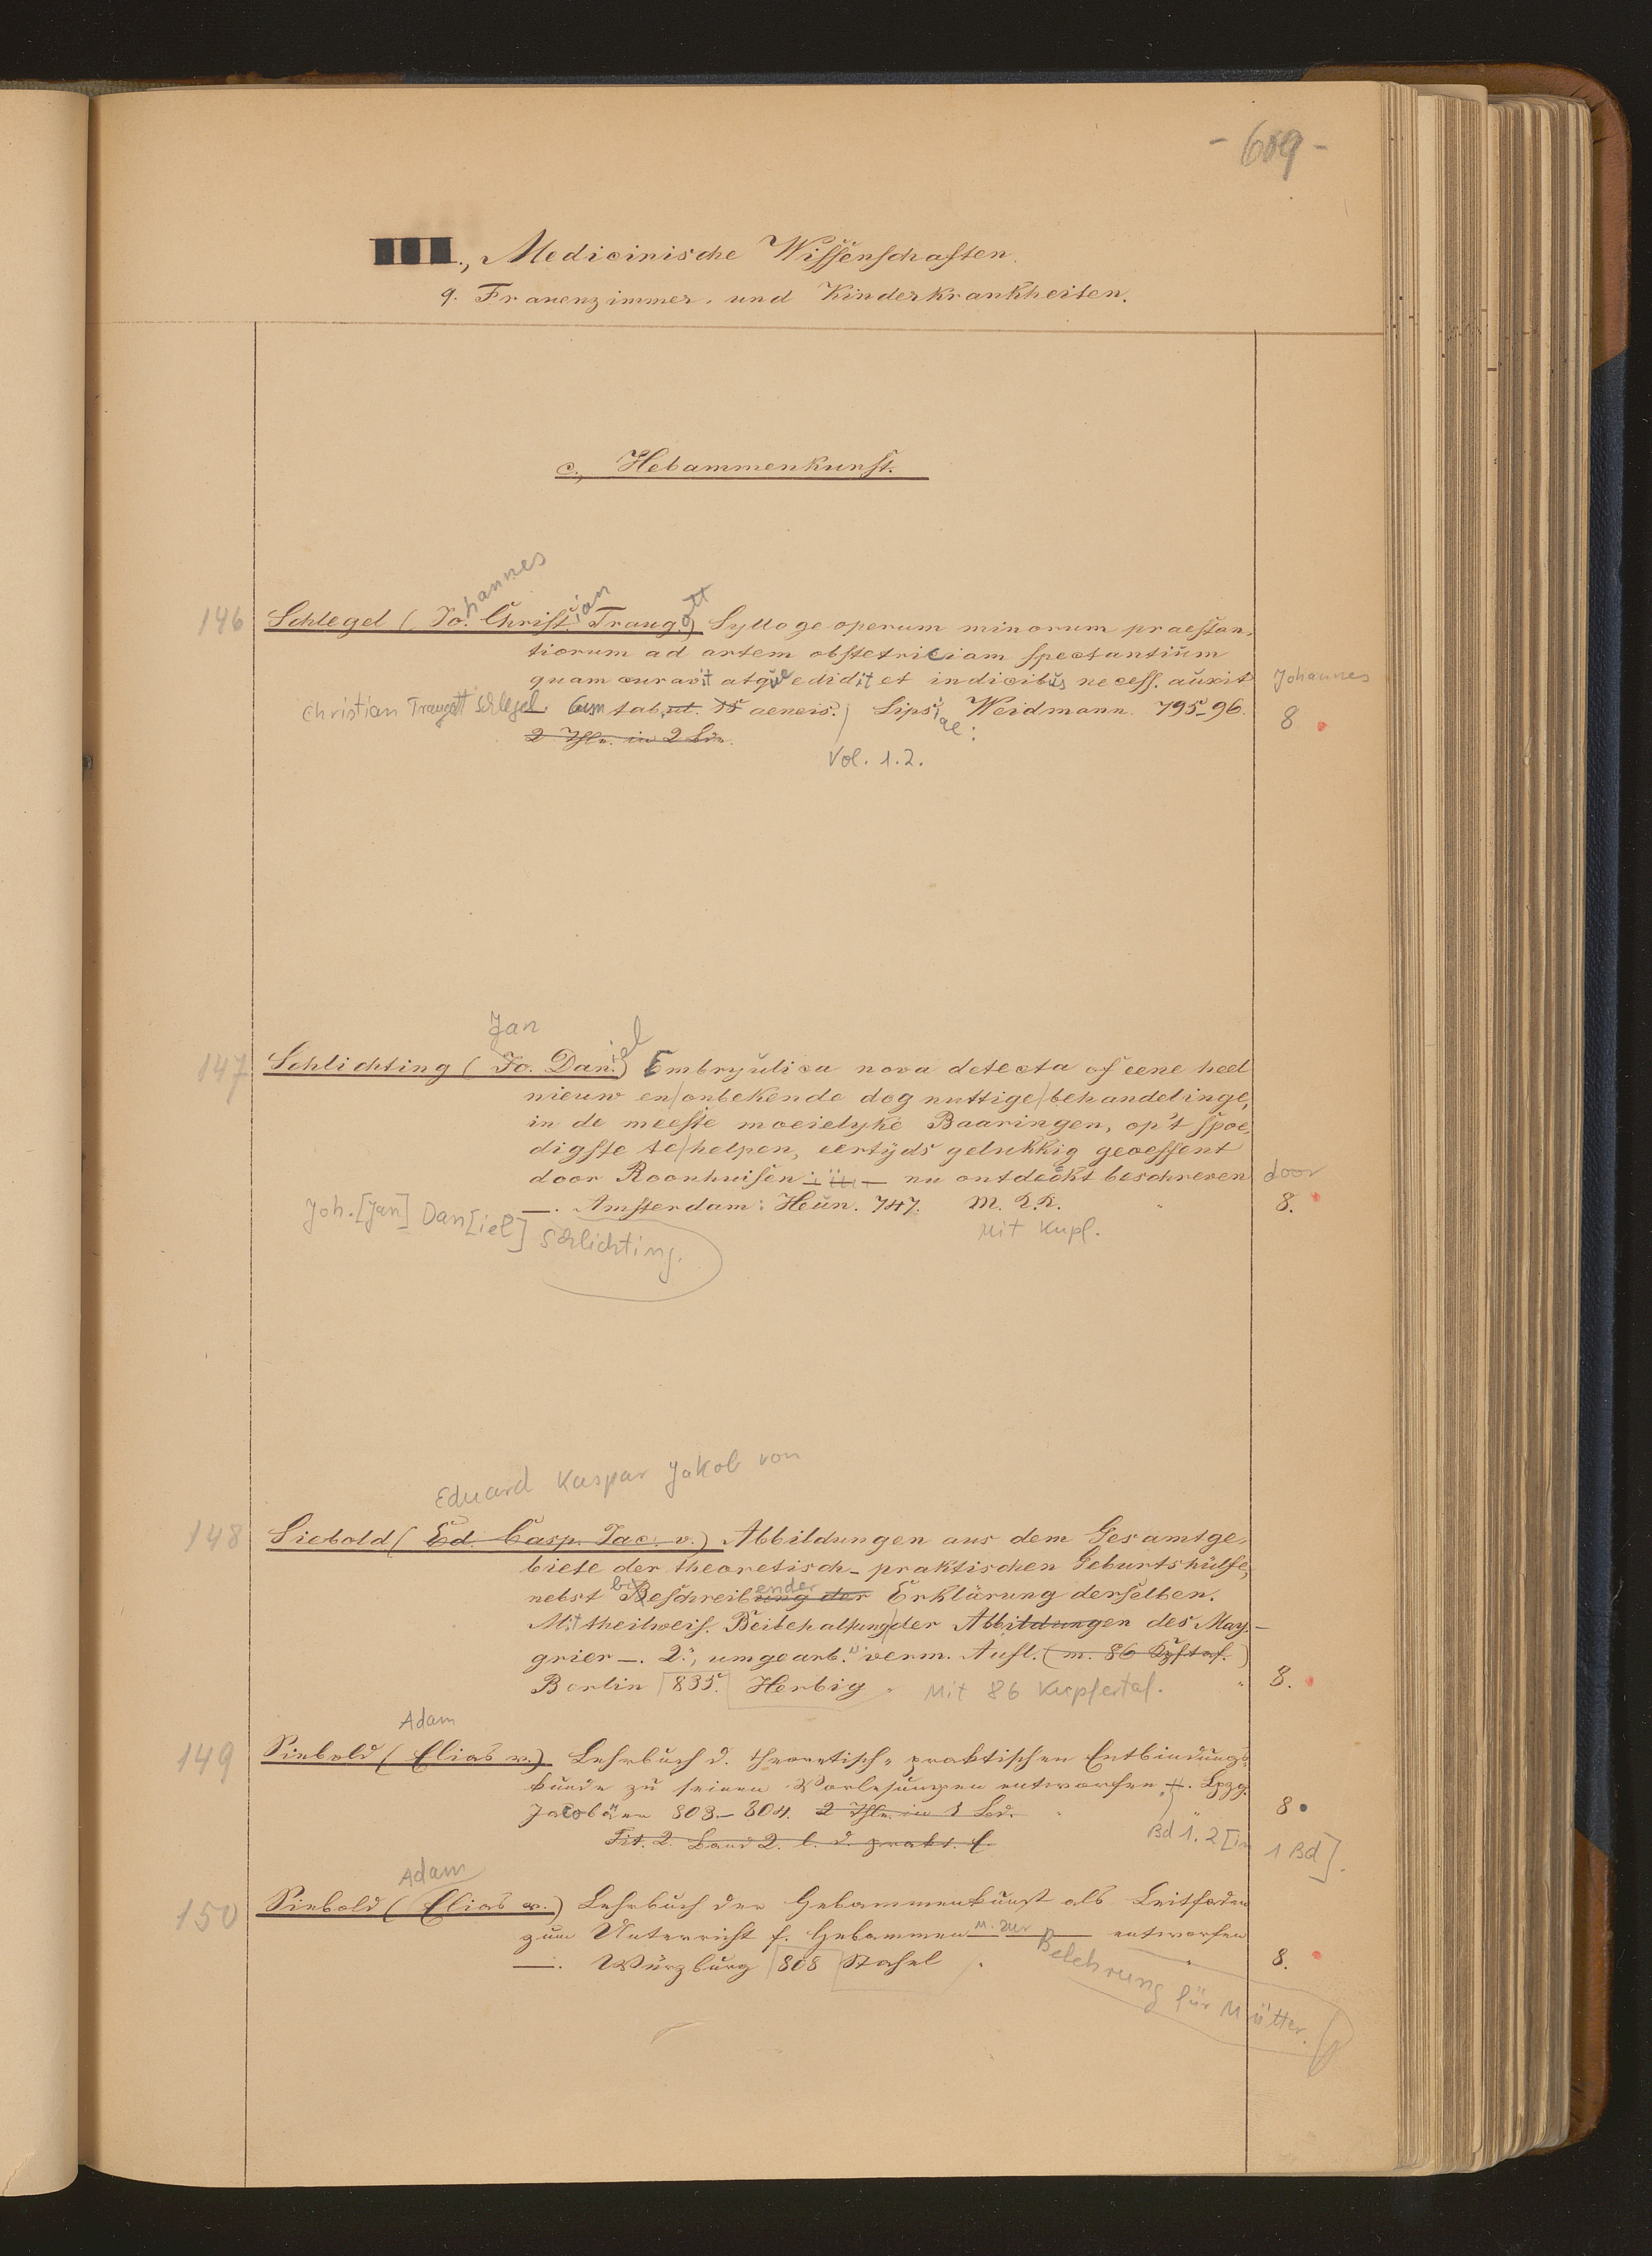 - 609 -
III., Medicinische Wissenschaften.
9. Frauenzimmer- und Kinderkrankheiten.
c., Hebammenkunst.
146 Schlegel (Johannes Christian Traugott) Sylloge operum minorum praestan-
tiorum ad artem obstetriciam spectantium
quam curavit atque edidit et indicibus necess. auxit Johannes
Christian Traugott Schlegel. Cum tab. aeneis. Lipsiae: Weidmann. 795-96. 8
2 Thle. in 2 Bdn.
Vol. 1.2.
Jan
147 Schlichting (Jo. Daniel) Embryulica nova detecta of eene heel
nieuw en onbekende dog nuttige behandelinge,
in de meeste moeielyke Baaringen, op't spoe-
digste te helpen, eertijds gelukkig geoeffent
door Roonhuisen nu ontdeckt beschreven door
—. Amsterdam: Heun. 747. M. K.K. 8.
Joh. [Jan] Dan[iel] Schlichting. Mit Kupf.
Eduard Kaspar Jakob von
148 Siebold (Ed. Casp. Jac. v.) Abbildungen aus dem Gesamtge-
biete der theoretisch-praktischen Geburtshülfe,
nebst beschreibender Erklärung derselben.
Mit theilweis. Beibehaltung der Abbildungen des May-
grier —. 2., umgearb. u. verm. Aufl. (m. 86 Kpftaf.)
Berlin 835. Herbig. Mit 86 Kupfertaf. 8.
Adam
149 Siebold (Elias v.) Lehrbuch d. theoretisch-praktischen Entbindungs-
kunde zu seinen Vorlesungen entworfen. Lpzg.
Jacobäer 803-804. 2 Thle. in 1 Bd. 8
Tit. 2. Band 2. l. d. prakt. E. Bd 1.2 [in 1 Bd].
Adam
150 Siebold (Elias v.) Lehrbuch der Hebammenkunst als Leitfaden
zum Unterricht f. Hebammen u. zur entworfen
—. Würzburg 808 Stahel. 8.
Belehrung für Mütter.